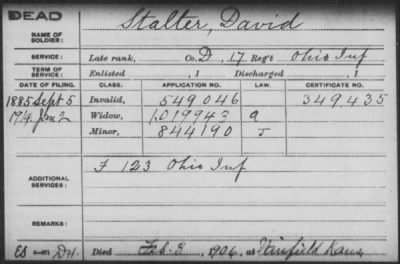 DEAD
NAME OF SOLDIER: Stalter, David
SERVICE: Late rank, Co. D, 17 Reg't Ohio Inf
TERM OF SERVICE: Enlisted , 1 Discharged , 1
DATE OF FILING. CLASS. APPLICATION NO. LAW. CERTIFICATE NO.
1885 Sept. 5 Invalid, 549046 349.435
Jan 2 Widow, 1,019943 a
Minor, 844190 J
ADDITIONAL SERVICES: F 123 Ohio Inf
REMARKS:
Died Feb. 3, 1906, at Winfield Kans